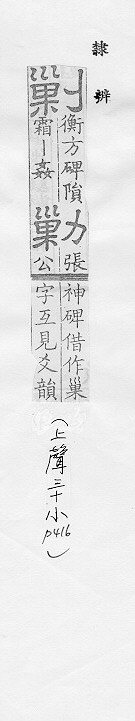 隸辨
剿
衡方碑隕
霜丨姦
勦
張
公
神碑借作巢
字互見爻韻
(上聲三十小 p416)